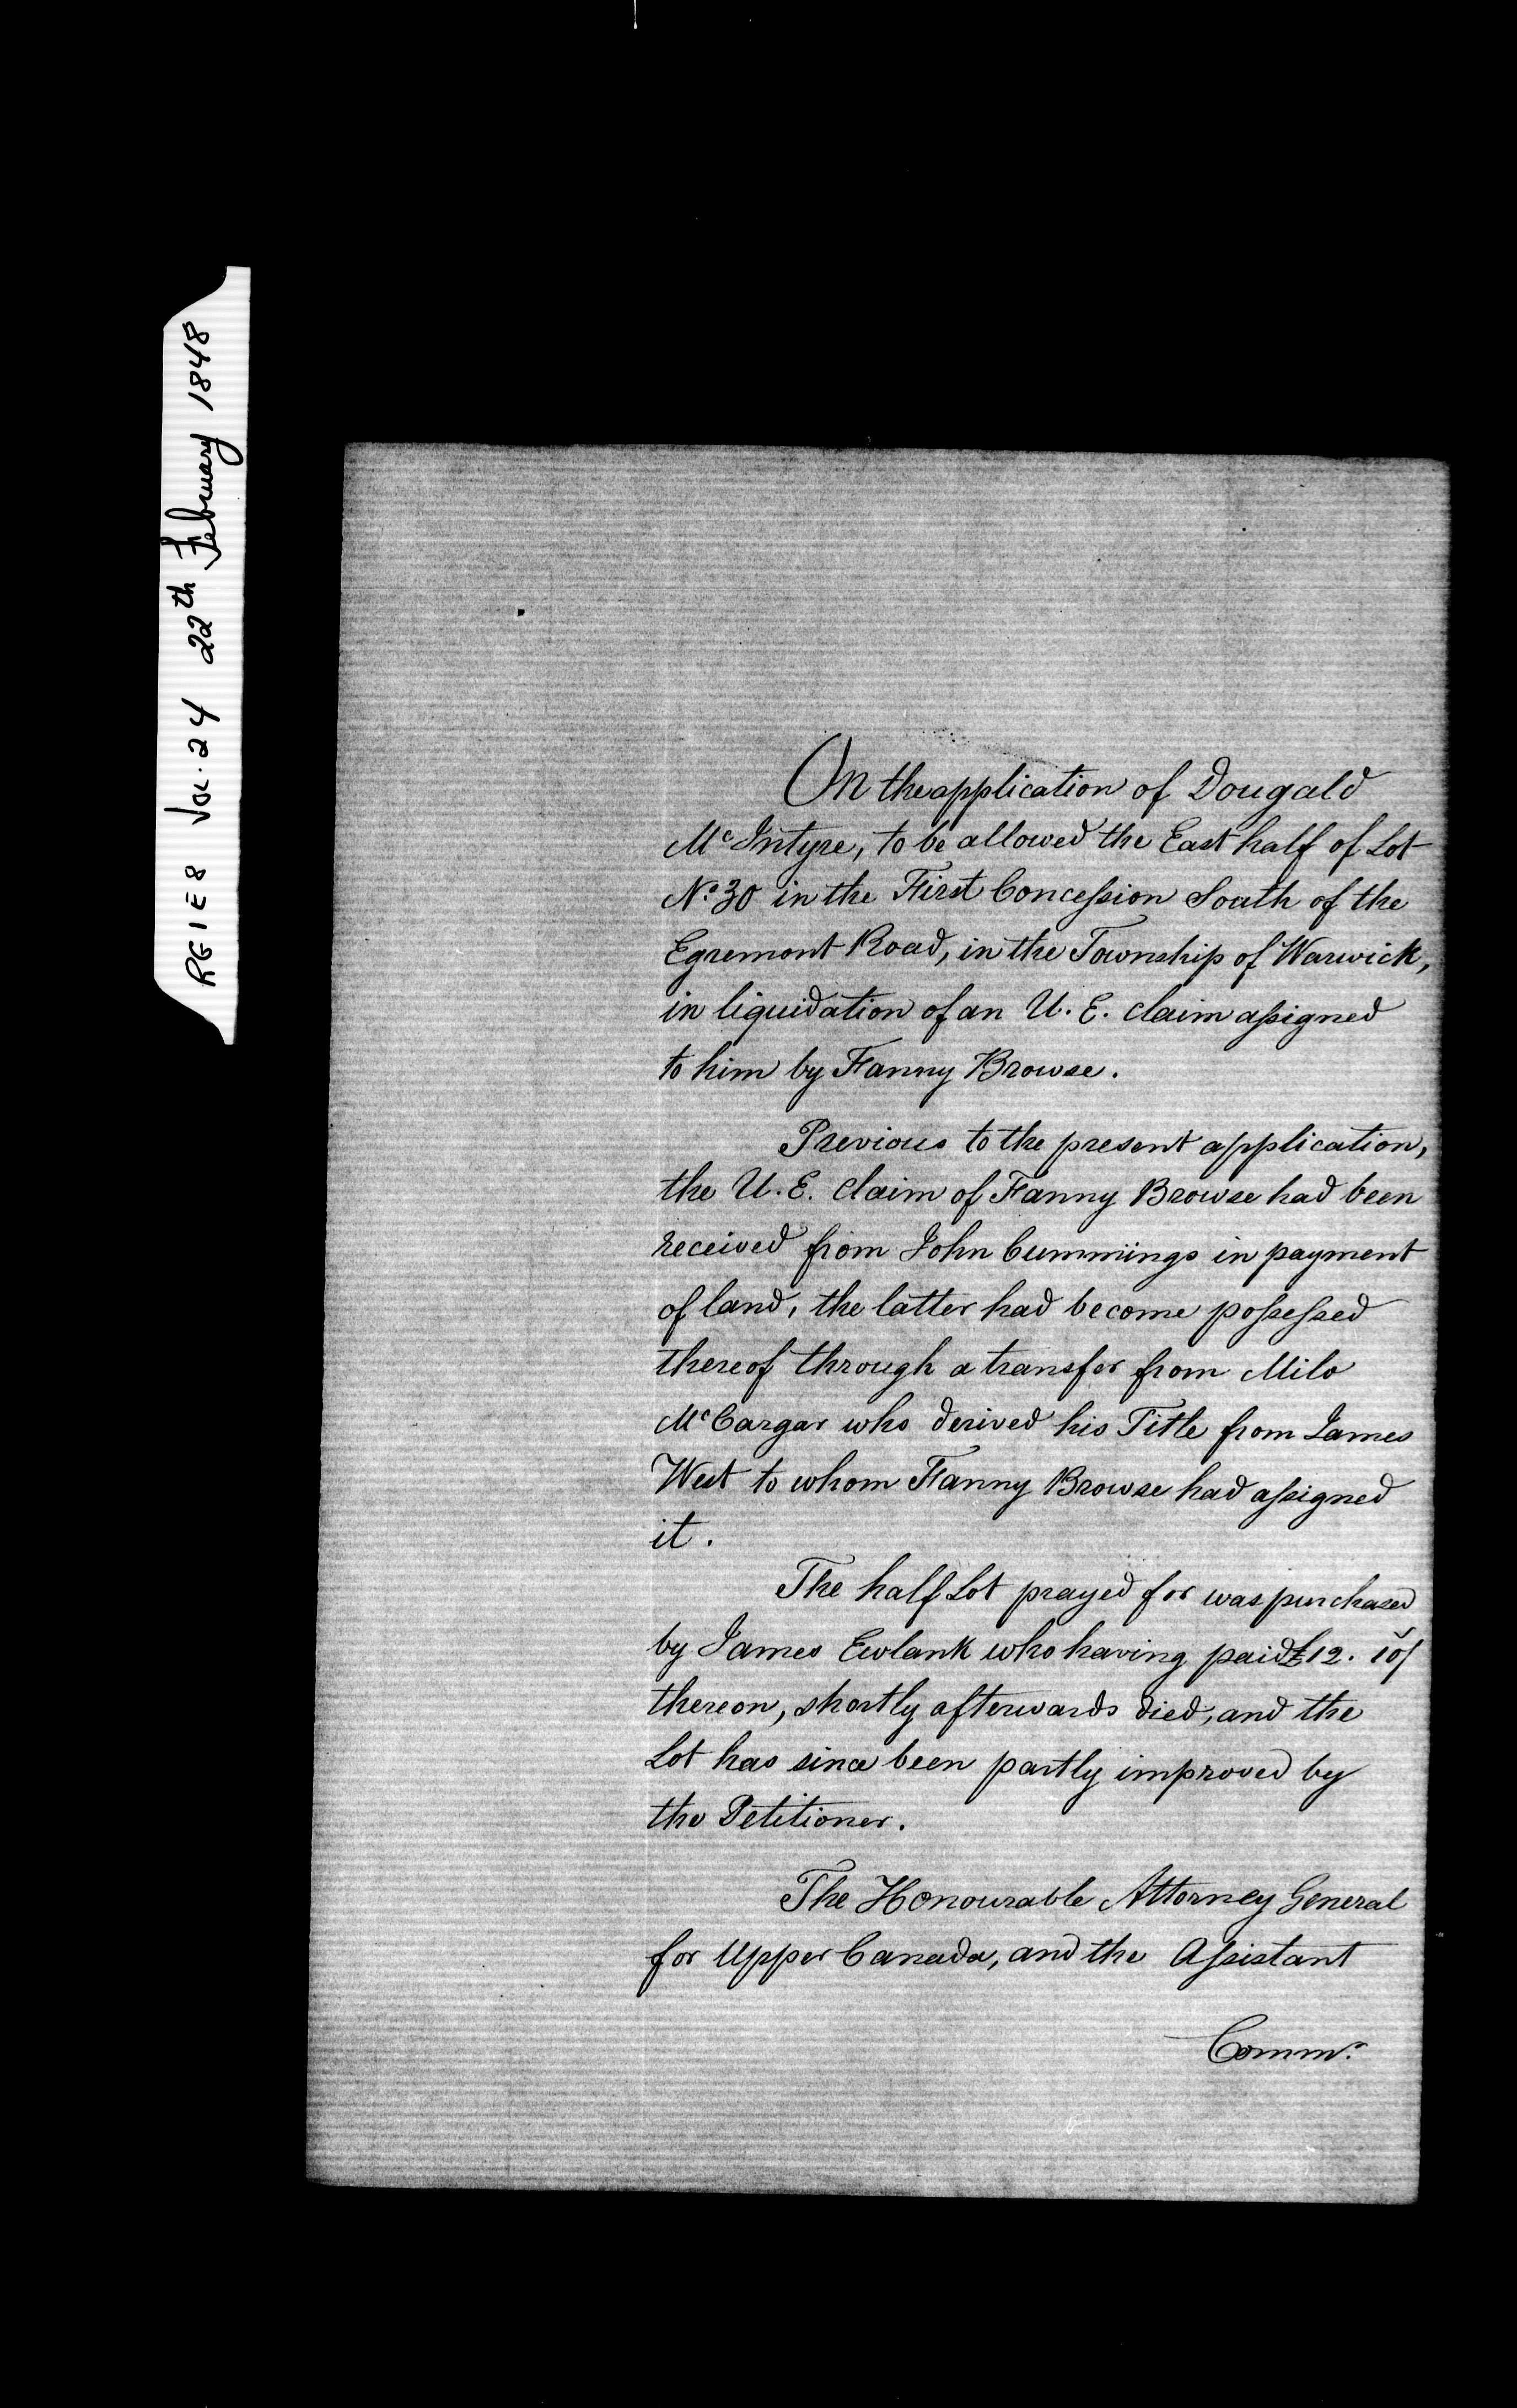 RG1E8 Vol. 24 22th February 1848
On the application of Dougald
McIntyre, to be allowed the East half of Lot
No. 30 in the First Concession South of the
Egremont Road, in the Township of Warwick,
in liquidation of an U. E. claim assigned
to him by Fanny Browse.
Previous to the present application,
the U. E. Claim of Fanny Browse had been
received from John Cummings in payment
of land, the latter had become possessed
thereof through a transfer from Milo
McCargar who derived his Title from James
West to whom Fanny Browse had assigned
it.
The half Lot prayed for was purchased
by James Ewlank who having paid £12. 10/
thereon, shortly afterwards died, and the
Lot has since been partly improved by
the Petitioner.
The Honourable Attorney General
for Upper Canada, and the Assistant
Commr.